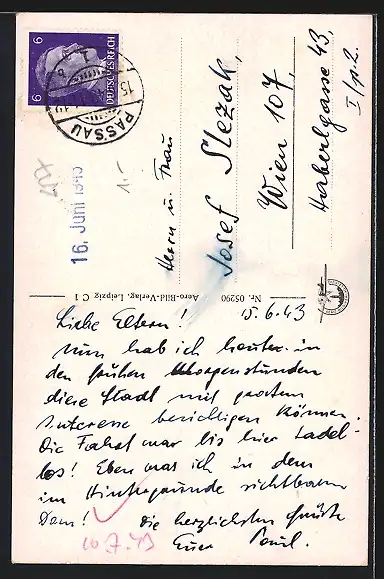 6
6
DEUTSCHES REICH
PASSAU
16. Juni 1943
1.-
Herrn u. Frau
Josef Slezak,
Wien 107,
Haberlgasse 43,
I/p.2.
Nr. 05290 Aero-Bild-Verlag, Leipzig C 1
15.6.43
Liebe Eltern!
Nun hab ich heute in
den frühen Morgenstunden
diese Stadt mit großem
Interesse besichtigen können.
Die Fahrt war bis hier tadel-
los! Eben war ich in dem
im Hintergrunde sichtbaren
Dom! Die herzlichsten Grüße
Euer Paul.
10.7.43